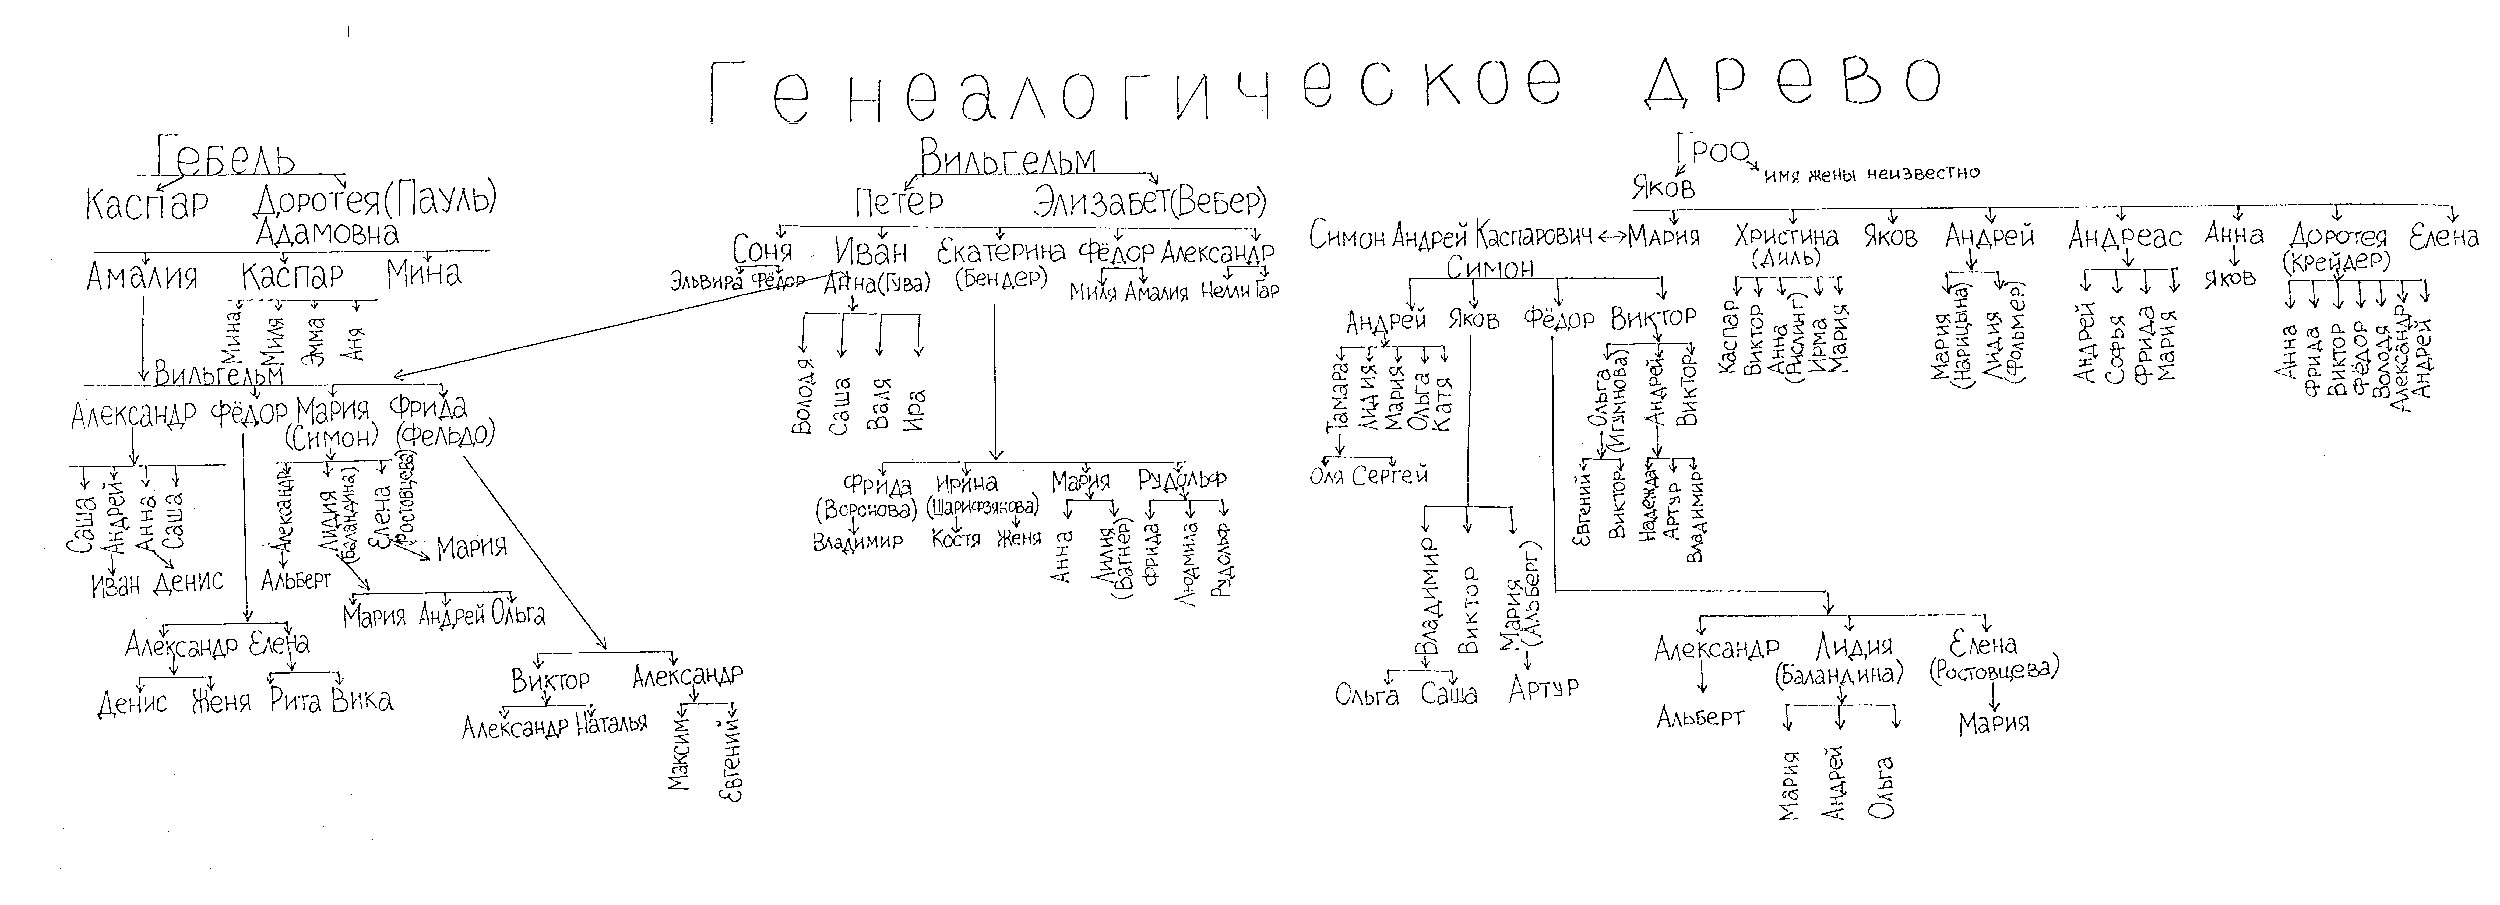 Генеалогическое древо
Гебель
Каспар Доротея (Пауль)
Адамовна
Амалия Каспар Мина
Мина
Миля
Эмма
Аня
Вильгельм
Александр Фёдор Мария Фрида
(Симон) (Фельдо)
Саша
Андрей
Анна
Саша
Иван Денис
Александр
Лидия
(Баландина)
Елена
(Ростовцева)
Мария
Альберт
Мария Андрей Ольга
Александр Елена
Денис Женя Рита Вика
Виктор Александр
Александр Наталья
Максим
Евгений
Вильгельм
Петер Элизабет (Вебер)
Соня Иван Екатерина Фёдор Александр
(Бендер)
Эльвира Фёдор Анна (Гува) Миля Амалия Нелли Гар
Володя
Саша
Валя
Ира
Фрида Ирина Мария Рудольф
(Воронова) (Шарифзякова)
Владимир Костя Женя
Анна
Лилия
(Вагнер)
Фрида
Людмила
Рудольф
Гроо
Яков имя жены неизвестно
Симон Андрей Каспарович Мария Христина Яков Андрей Андреас Анна Доротея Елена
(Диль) (Крейдер)
Симон
Андрей Яков Фёдор Виктор
Тамара
Лидия
Мария
Ольга
Катя
Оля Сергей
Ольга
(Игумнова)
Андрей
Виктор
Евгений
Виктор
Надежда
Артур
Владимир
Владимир
Виктор
Мария
(Альберт)
Ольга Саша Артур
Александр Лидия Елена
(Баландина) (Ростовцева)
Альберт Мария
Мария
Андрей
Ольга
Каспар
Виктор
Анна
(Рислинг)
Ирма
Мария
Мария
(Нарицына)
Лидия
(Фольмер)
Андрей
Софья
Фрида
Мария
Яков
Анна
Фрида
Виктор
Фёдор
Володя
Александр
Андрей